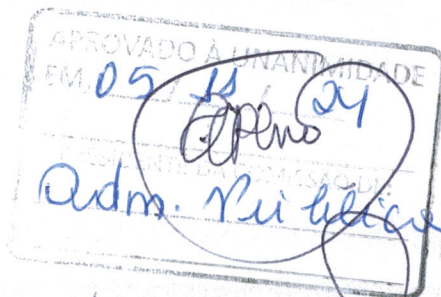 APROVADO À UNANIMIDADE
EM 05 / 11 / 24
PRESIDENTE DA COMISSÃO DE:
Adm. Pública